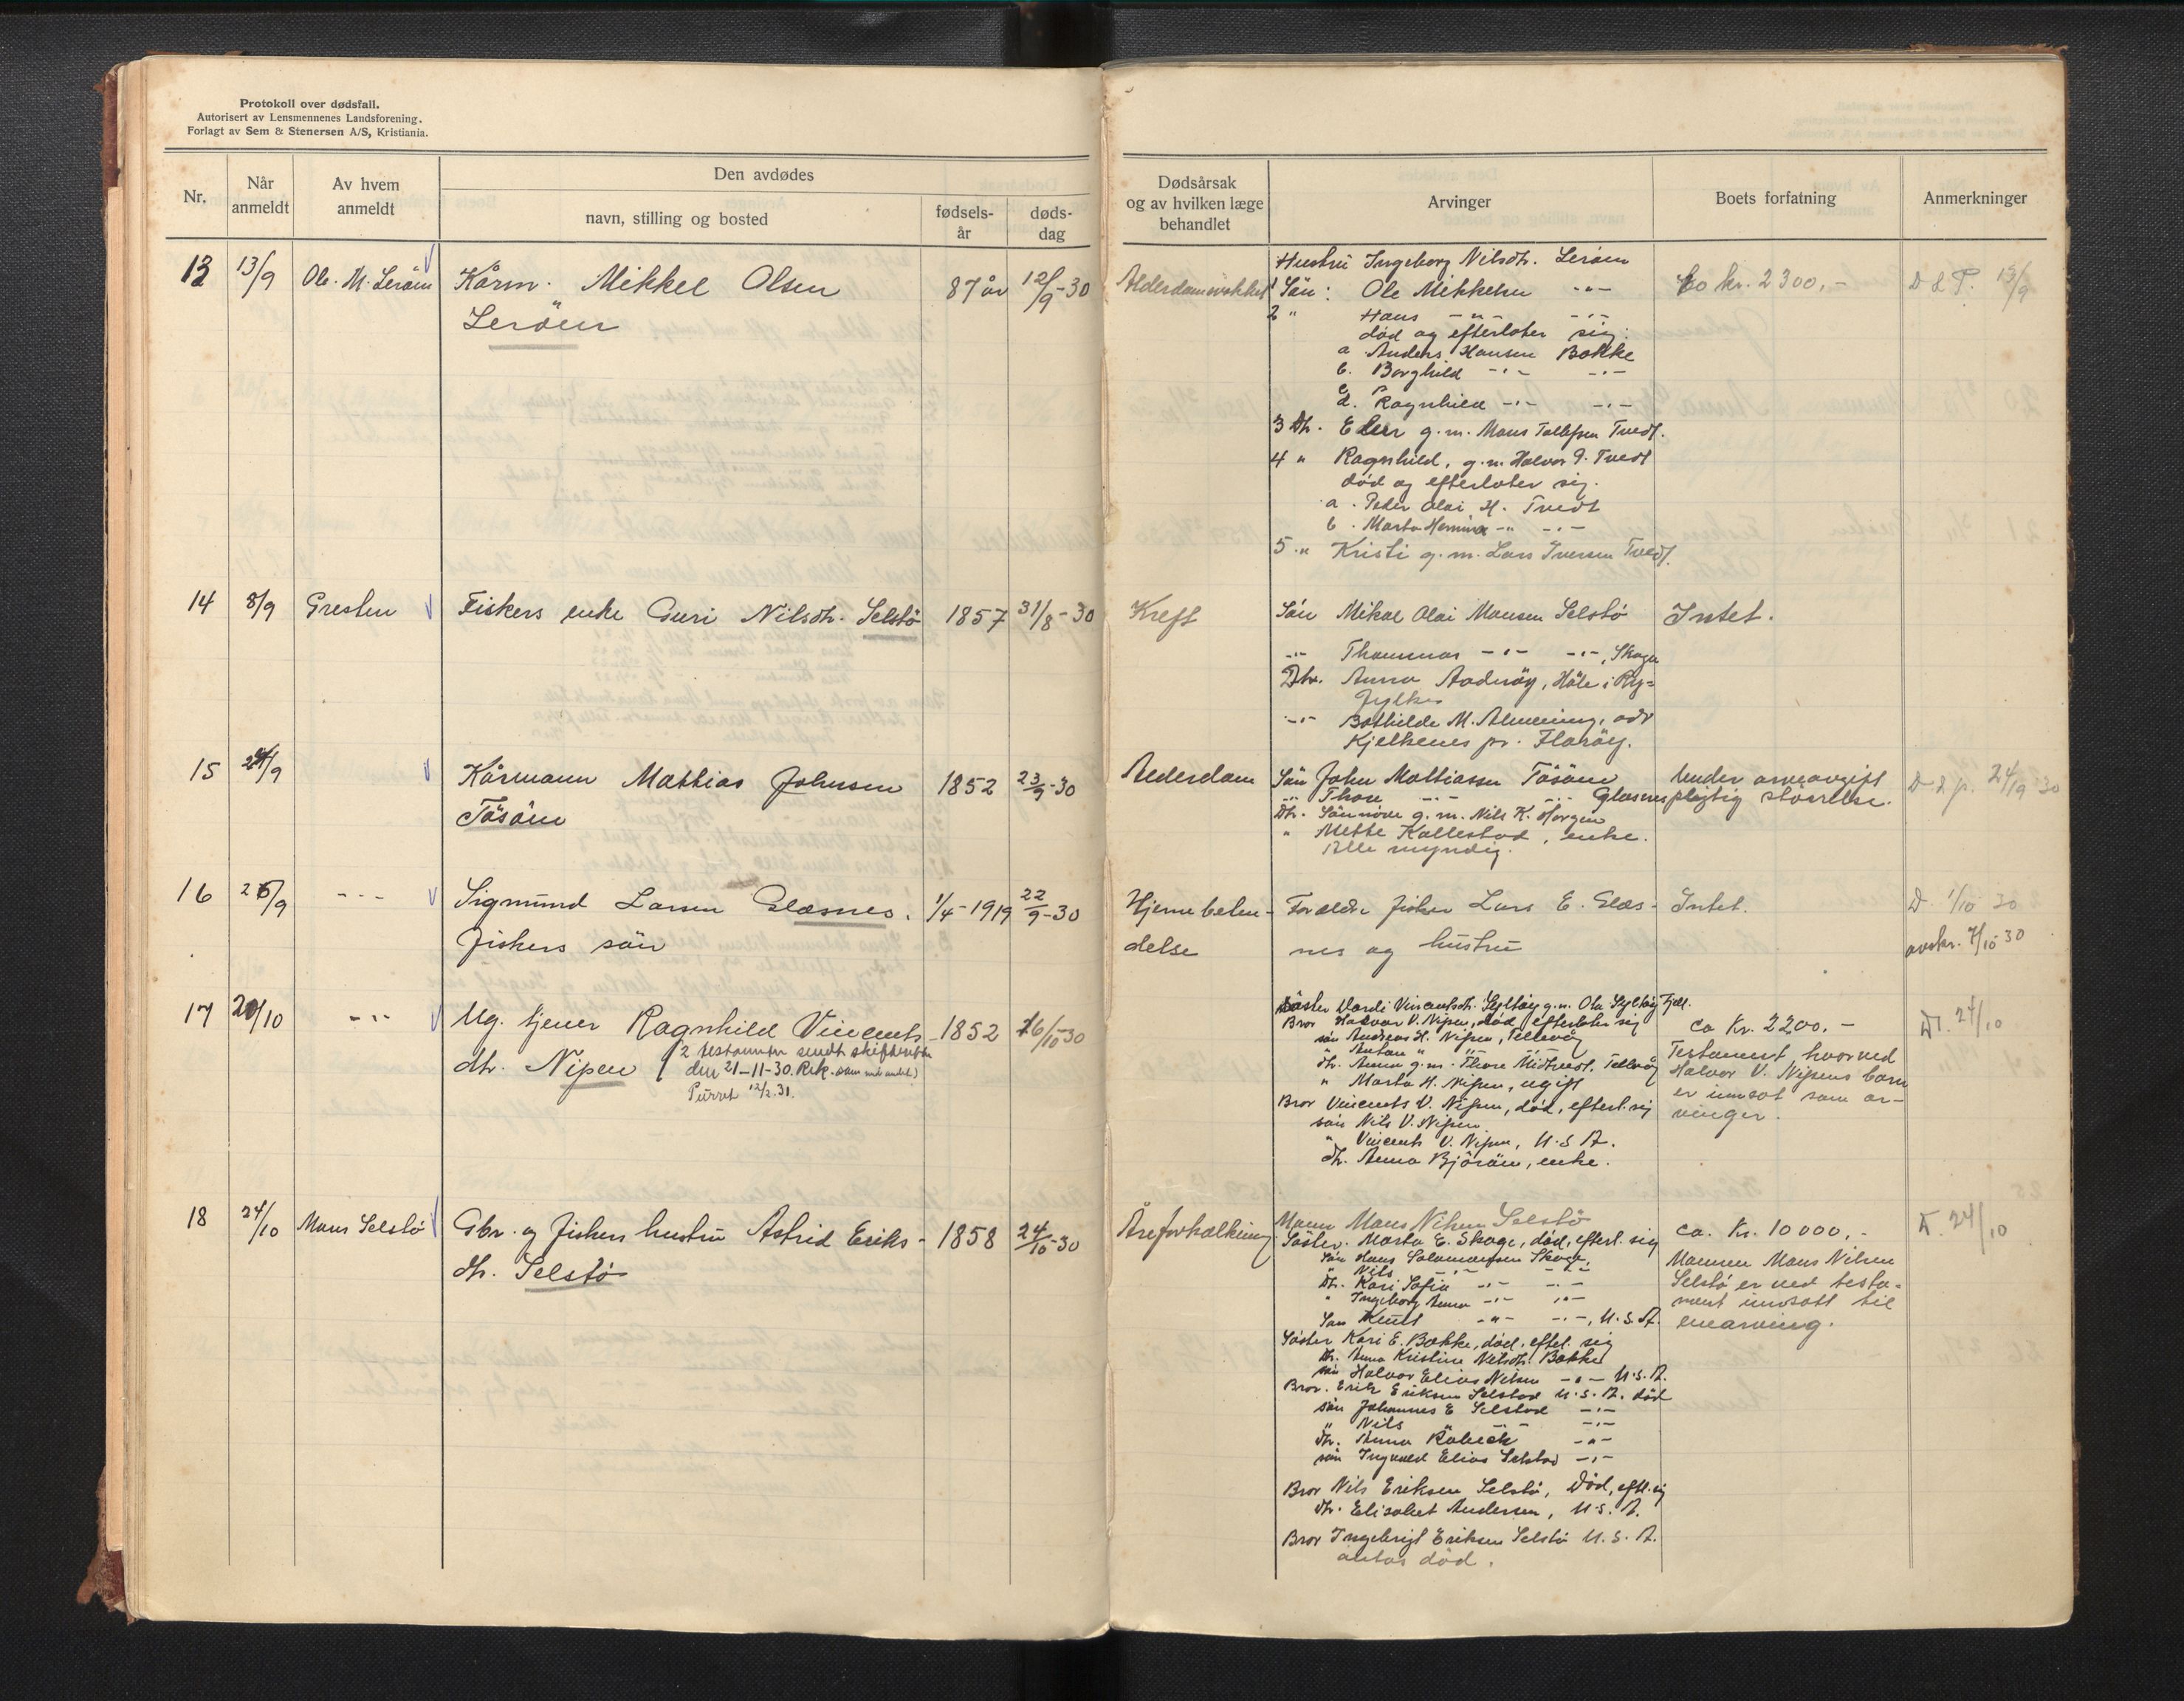 Protokoll over dødsfall.
Autorisert av Lensmennenes Landsforening.
Forlagt av Sem & Stenersen A/S, Kristiania.
Nr.
Når anmeldt
Av hvem anmeldt
Den avdødes
navn, stilling og bosted
fødsels-år
døds-dag
Dødsårsak og av hvilken læge behandlet
Arvinger
Boets forfatning
Anmerkninger
13 13/9 Ole M. Leröen Kårm. Mikkel Olsen 87 år 12/9-30
Leröen
Alderdomsvakkel
Hustru Ingeborg Nilsdtr. Leröen
1 Sön: Ole Mikkelsen -"-
2 " Hans -"- -"-
död og efterlater sig:
a Anders Hansen Bakke
b. Borghild -"- -"-
d. Ragnhild -"- -"-
3 Dtr. Elen g.m. Mons Tollefsen Tvedt.
4 " Ragnhild, g.m. Halvor P. Tvedt
död og efterlater sig.
a. Peder Olai H. Tvedt
b. Marta Hemina -"- -"-
5 " Kristi g.m. Lars Iversen Tvedt.
Co kr. 2300,-
D & P. 13/9
14 8/9 Presten Fiskers enke Guri Nilsdtr. Selstö 1857 31/8-30
Kreft
Sön Mikal Olai Monsen Selstö
-"- Thommas -"- -"-, Skoge
Dtr. Anna Aaderöy, Håle i Ry=
fylke
-"- Bothilde M. Almening, adr
Kjelkenes pr. Floröy.
Intet.
15 24/9 Kårmann Mathias Johnsen 1852 23/9-30
Tösöen
Alderdom
Sön John Mathiassen Tösöen
-"- Thore -"- -"- Glæsnes
Dtr. Sönnöve g.m. Nils K. Horgen
" Mette Kallestad, enke.
Alle myndig.
Under arveavgift
pligtig störrelse.
D & p. 24/9 30
16 26/9 -"- Sigmund Larsen Glæsnes. 1/4-1919 22/9-30
fiskers sön
Hjernebeten-
delse
Foreldre fisker Lars E. Glæs-
nes og hustru
Intet.
D. 1/10 30
avskr. 7/10 30
17 20/10 -"- Ug. tjener Ragnhild Vincents- 1852 16/10-30
dtr. Nipen
2 testamenter sendt skifteretten
den 21-11-30. Rek.
Purret 12/2.31.
Söster Dordi Vincentsdtr. Syltöy g.m. Ola Syltöy Fjell.
Bror Halvor V. Nipen, död, efterlater sig
sön Andreas H. Nipen, Tellevåg
" Anton " "
dtr. Anna g.m. Thore Midttvedt, Tellevåg
" Marta H. Nipen, ugift
Bror Vincents V. Nipen, död, efterl. sig
sön Nils V. Nipen
" Vincents V. Nipen, U.S.A.
dtr. Anna Björöen, enke.
ca Kr. 2200.-
Testament, hvorved
Halvor V. Nipens barn
er innsat som ar-
vinger.
D. 24/10
18 24/10 Mons Selstö Gbr. og fiskers hustru Astrid Eriks- 1858 24/10-30
dtr. Selstö
Åreforkalkning
Mann Mons Nilsen Selstö
Söster. Marta E. Skoge, död, efterl. sig
Sön Hans Salamonsen Skoge,
" Nils -"- -"-
Dtr. Kari Sofia -"- -"-
" Ingeborg Anna -"- -"-
Sön Knut -"- -"-, U.S.A.
Söster Kari E. Bakke, död, efterl. sig
dtr. Anna Kristine Nilsdtr. Bakke
sön Halvor Elias Nilsen -"- U.S.A.
Bror. Erik Eriksen Selstad U.S.A. död
sön Johannes E Selstad -"-
" Nils -"- -"-
dtr. Anna Robeck -"-
sön Ingvald Elias Selstad -"-
Bror Nils Eriksen Selstö, död, eftl. sig
dtr. Elisabet Andersen, U.S.A.
Bror Ingebrigt Eriksen Selstö U.S.A.
antas död.
ca. Kr. 10000,-
Mannen Mons Nilsen
Selstö er ved testa-
ment innsatt til
enearving.
D. 24/10